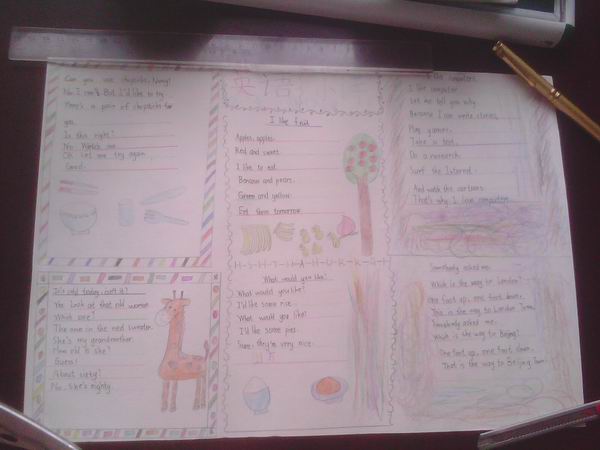 Can you use chopsticks, Nancy?
No I can't. But I'd like to try.
Here's a pair of chopsticks for
you.
Is this right?
No. Watch me.
Oh. Let me try again.
Good.
英语
I like fruit
Apples, apples.
Red and sweet.
I like to eat.
Bananas and pears.
Green and yellow.
Eat them tomorrow.
I like computers.
I like computer
Let me tell you why
Because I can write stories,
Play games.
Take a test.
Do a research.
Surf the Internet.
And watch the cartoons.
That's why I love computers.
It's cold today, isn't it?
Yes. Look at that old woman.
Which one?
The one in the red sweater.
She's my grandmother.
How old is she?
Guess!
About sixty?
No. She's eighty.
What would you like?
What would you like?
I'd like some rice.
What would you like?
I'd like some pies.
Sure, they're very nice.
Somebody asked me.
Which is the way to London?
One foot up, one foot down.
This is the way to London Town.
Somebody asked me.
Which is the way to Beijing?
One foot up, one foot down.
That is the way to Beijing Town.